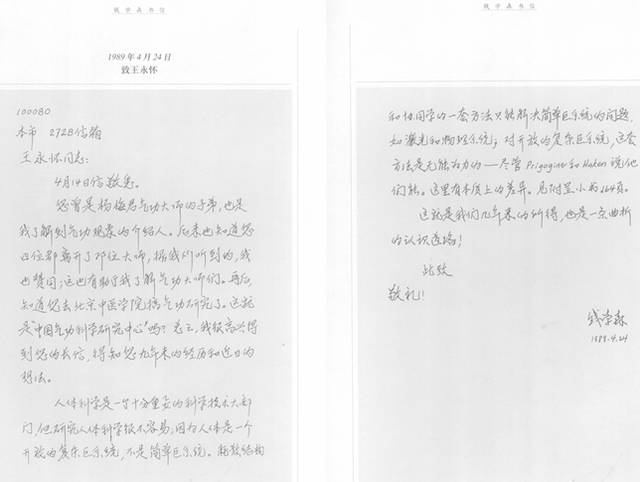 钱学森书信
1989年4月24日
致王永怀
100080
本市 2728信箱
王永怀同志:
4月14日信敬悉。
您曾是杨梅君气功大师的子弟,也是
我了解到气功现象的介绍人。后来也知道您
这位却离开了那位大师,据我所听到的,我
也赞同;这也有助于我了解气功大师们。再后,
知道您去北京中医学院搞气功研究了。这就
是“中国气功科学研究中心”吗?总之,我很高兴得
到您的长信,得知您九年来的经历和近日的
想法。
人体科学是一个十分重要的科学技术大部
门,但研究人体科学很不容易,因为人体是一个
开放的复杂巨系统,不是简单巨系统。耗散结构
钱学森书信
和协同学的一套方法只能解决简单巨系统的问题,
如激光和物理系统;对开放的复杂巨系统,这套
方法是无能为力的——尽管Prigogine和Haken说他
们能。这里有本质上的差异。见附呈小书264页。
这就是我们几年来的所得,也是一条曲折
的认识道路!
此致
敬礼!
钱学森
1989.4.24